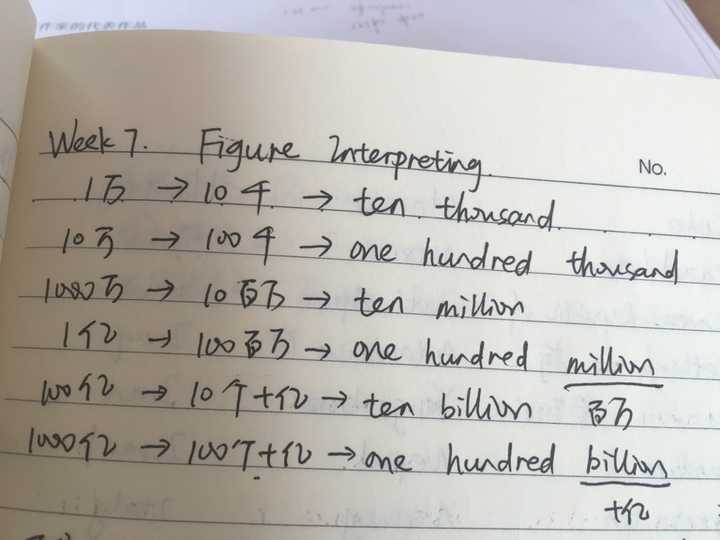 作家的代表作品
Week 7. Figure Interpreting
No.
1万 → 10千 → ten thousand
10万 → 100千 → one hundred thousand
1000万 → 10百万 → ten million
1亿 → 100百万 → one hundred million
百万
100亿 → 10个十亿 → ten billion
1000亿 → 100个十亿 → one hundred billion
十亿